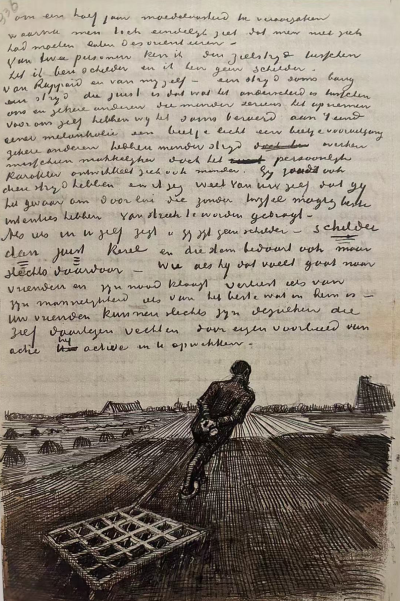 om een half jaar moedeloosheid te veroorzaken
waarna men toch eindelijk ziet dat men niet zich
had moeten laten desorienteeren.
Van twee personen ken ik den zielstrijd tusschen
het ik ben schilder en ik ben geen schilder.
Van Rappard en van mijzelf – een strijd soms bang
een strijd die juist is dat wat het onderscheid is tusschen
ons en zekere anderen die minder serieus het opnemen
Voor ons zelf hebben wij 't soms beroerd aan 't eind
eener melankolie een beetje licht een beetje vooruitgang
zekere anderen hebben minder strijd werken
misschien makkelijker doch het persoonlijk
karakter ontwikkelt zich ook minder. Gij zoudt ook
dien strijd hebben en ik zeg weet van uw zelf dat gij
het gevaar om door lui die zonder twijfel beste
intenties hebben van streek te worden gebragt.
Als iets in U zelf zegt gij zijt geen schilder – schilder
dan juist kerel en die stem bedaart ook maar
slechts daardoor – Wie als hij dat voelt gaat naar
vrienden en zijn nood klaagt verliest iets van
zijn mannelijkheid iets van het beste wat in hem is –
Uw vrienden kunnen slechts zijn dezulken die
zelf daartegen vechten door eigen voorbeeld van
actie actieve in U opwekken.